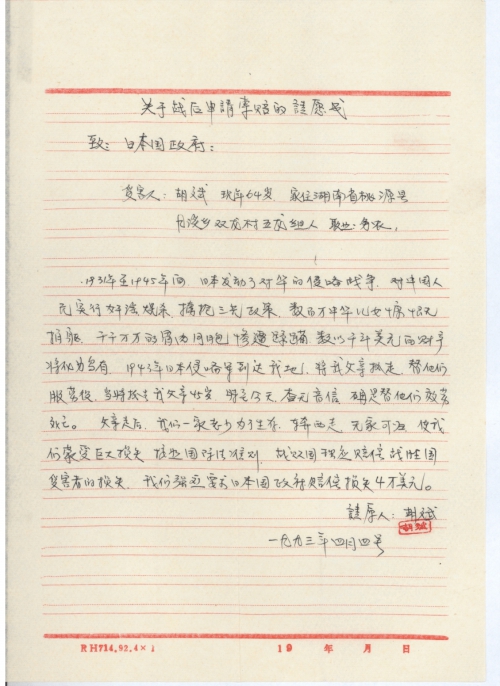 关于战后申請索赔的請愿书
致：日本国政府：
受害人：胡斌 现年64岁 家住湖南省桃源县
双龙村五龙组人 职业：务农，
1931年至1945年间 日本发动了对华的侵略战争，对中国人
民实行奸淫烧杀、擄抢三光政策，数百万中华儿女
千千万万的同胞惨遭蹂躏 数以千计美元的财产
1943年日本侵略军到达我地，将我父亲抓走，替他们
服苦役，当时抓去我父亲45岁 明至今天，杳无音信 确是替他们效劳
死亡。 父亲走后，我们一家老少为了生存，东奔西走，无家可归，使我
们蒙受巨大损失 按照国际法准则，战败国理应赔偿战胜国
受害者的损失，我们强烈要求日本国政府赔偿损失4万美元。
請愿人：胡斌
胡斌
一九九三年四月四号
RH714.92.4×1
19 年 月 日